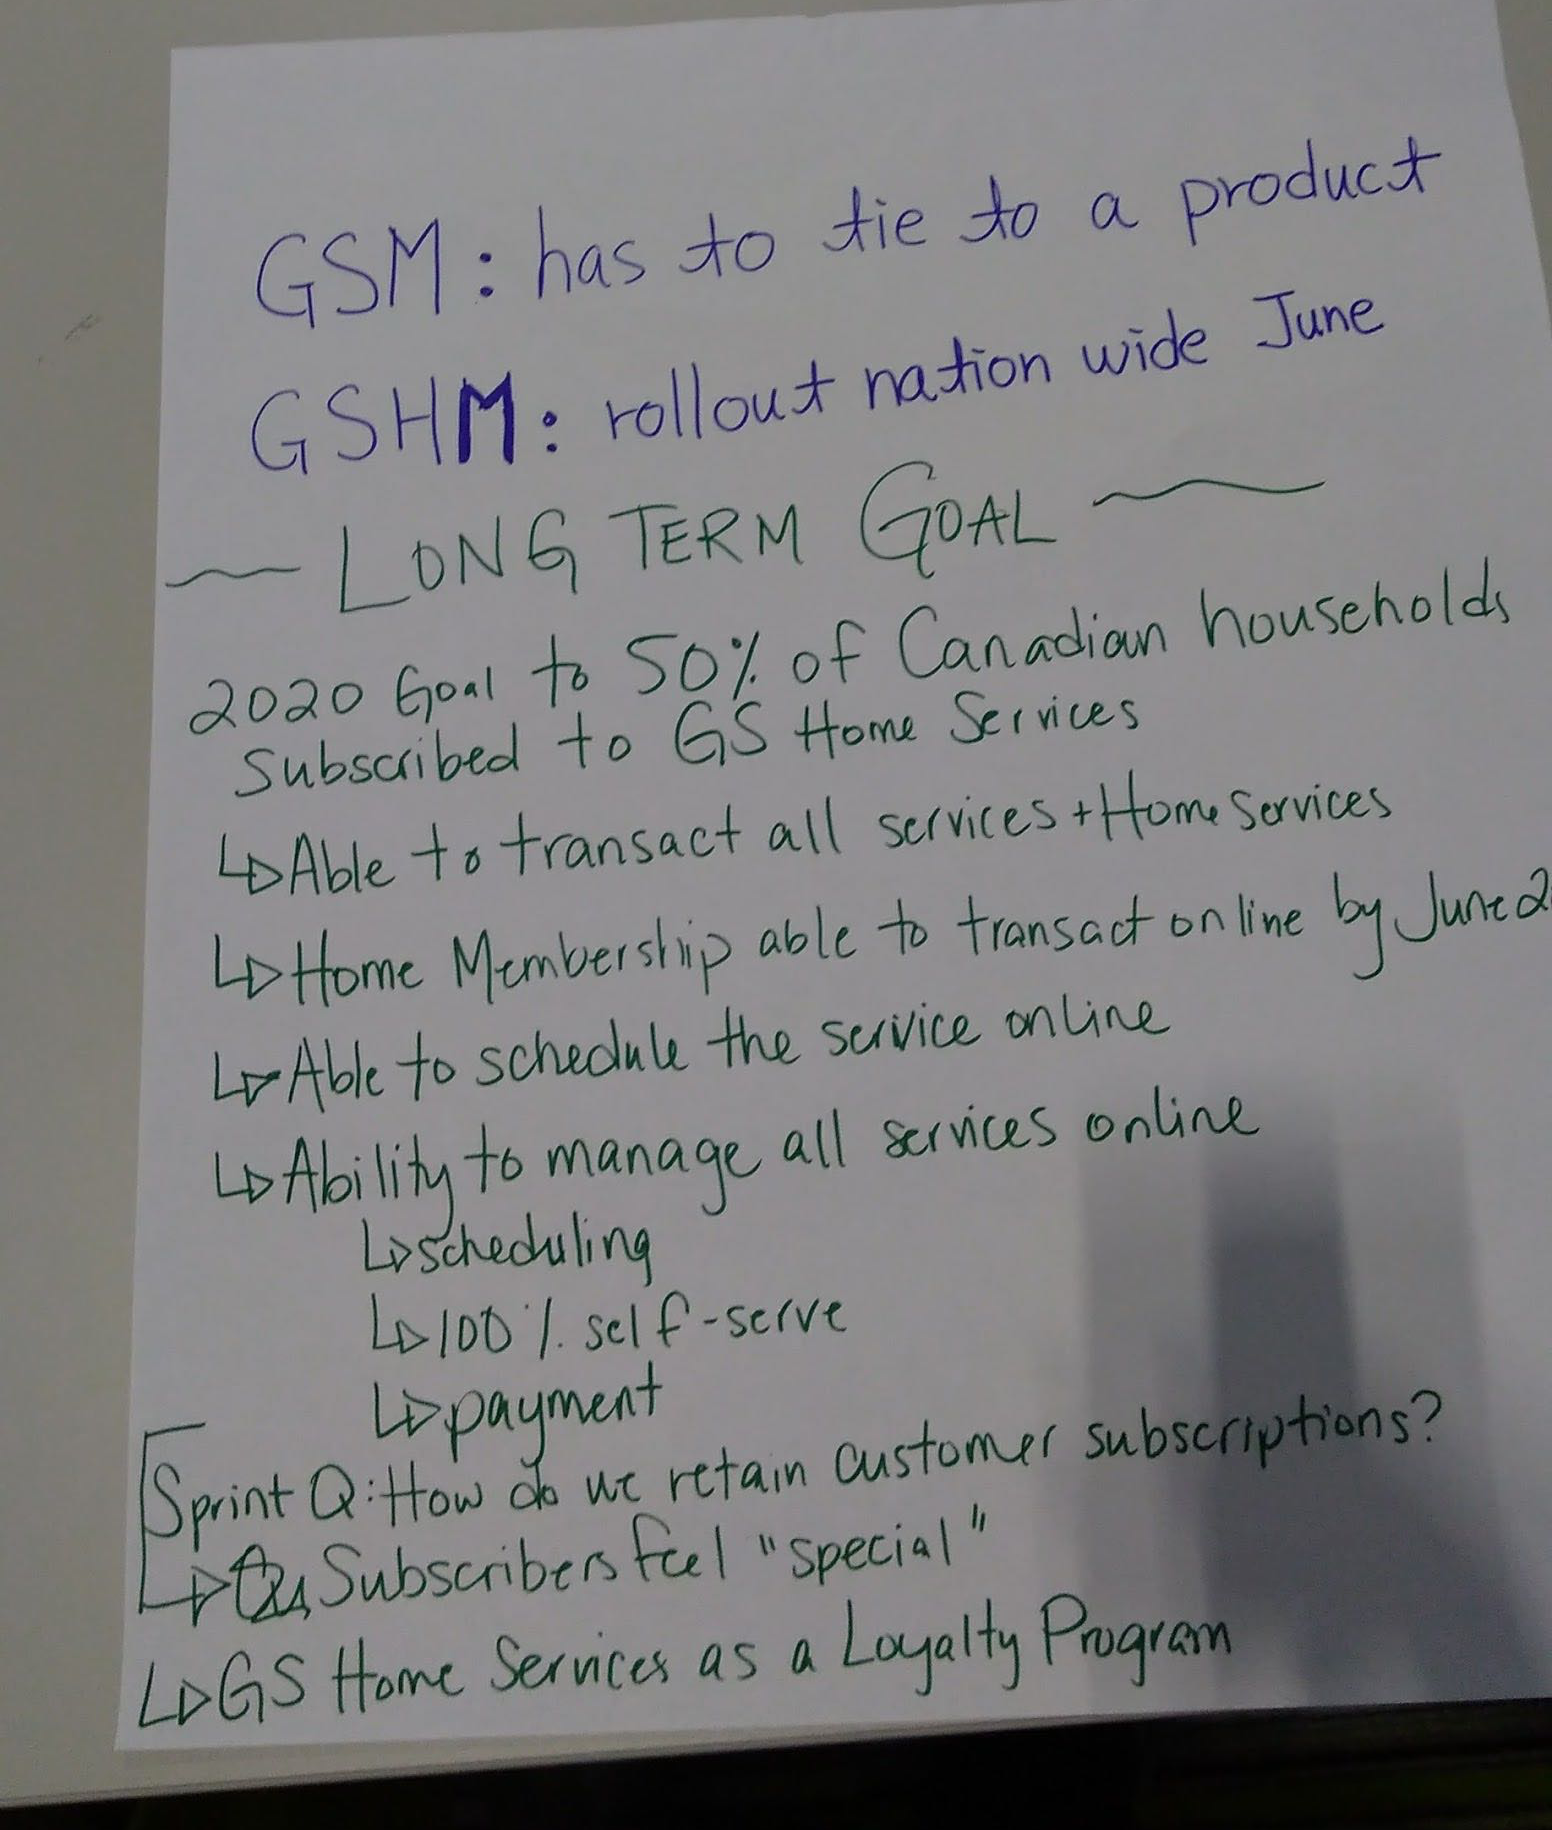 GSM: has to tie to a product
GSHM: rollout nation wide June
~ LONG TERM GOAL ~
2020 Goal to 50% of Canadian households
Subscribed to GS Home Services
↳ Able to transact all services + Home Services
↳ Home Membership able to transact online by June 2
↳ Able to schedule the service online
↳ Ability to manage all services online
↳ scheduling
↳ 100% self-serve
↳ payment
Sprint Q: How do we retain customer subscriptions?
↳ Subscribers feel "special"
↳ GS Home Services as a Loyalty Program